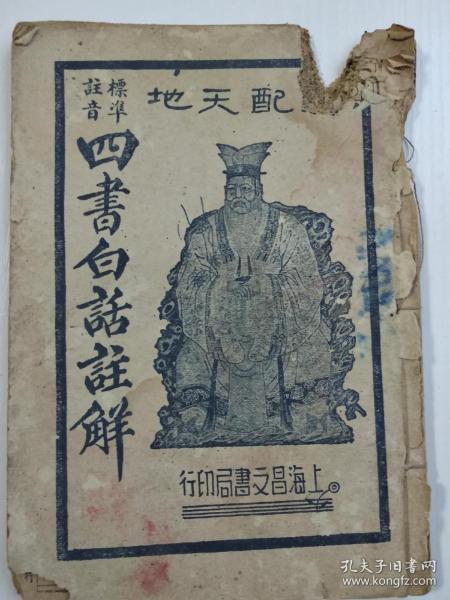 配天地
標準
註音
四書白話註解
上海昌文書局印行
孔夫子旧书网
www.kongfz.com